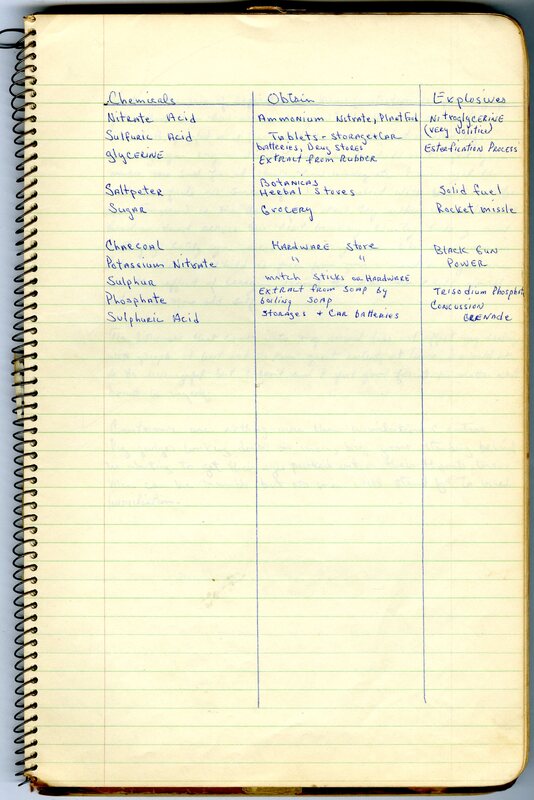 Chemicals Obtain Explosives
Nitrate Acid Ammonium Nitrate, Plant Food Nitroglycerine
Sulfuric Acid Tablets - Storage + Car (very
batteries, Drug Stores Esterfication Process
glycerine Extract from Rubber
Botanicas
Saltpeter Herbal Stores Solid fuel
Sugar Grocery Rocket missle
Charcoal Hardware Store Black Gun
Potassium Nitrate " " Power
Sulphur match sticks or Hardware
Phosphate Extract from Soap by Trisodium Phosphate
boiling soap Concussion
Sulphuric Acid Storages + Car batteries Grenade